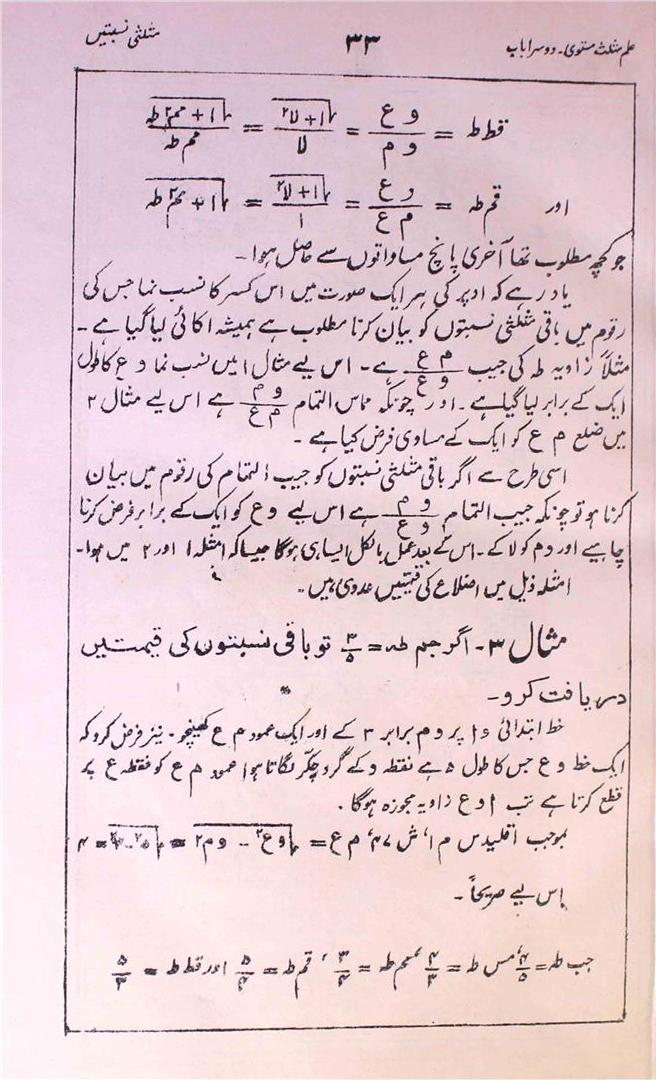 علم مثلث مستوی۔ دوسرا باب
۳۳
مثلثی نسبتیں
قطط طہ = و ع / و م = √(۱ + لا۲) / لا = √(۱ + مم۲ طہ) / مم طہ
اور قم طہ = و ع / م ع = √(۱ + لا۲) / ۱ = √(۱ + مم۲ طہ)
جو کچھ مطلوب تھا آخری پانچ مساواتوں سے حاصل ہوا۔
یاد رہے کہ اوپر کی ہر ایک صورت میں اس کسر کا نسب نما جس کی
رقوم میں باقی مثلثی نسبتوں کو بیان کرنا مطلوب ہے ہمیشہ اکائی لیا گیا ہے۔
مثلاً زاویہ طہ کی جیب م ع / و ع ہے۔ اس لیے مثال ۱ میں نسب نما و ع کا طول
ایک کے برابر لیا گیا ہے۔ اور چونکہ مماس التمام و م / م ع ہے اس لیے مثال ۲
میں ضلع م ع کو ایک کے مساوی فرض کیا ہے۔
اسی طرح سے اگر باقی مثلثی نسبتوں کو جیب التمام کی رقوم میں بیان
کرنا ہو تو چونکہ جیب التمام و م / و ع ہے اس لیے و ع کو ایک کے برابر فرض کرنا
چاہیے اور و م کو لا کے۔ اس کے بعد عمل بالکل ایسا ہی ہوگا جیسا کہ امثلہ ۱ اور ۲ میں ہوا۔
امثلہ ذیل میں اضلاع کی قیمتیں عددی ہیں۔
مثال ۳۔ اگر جم طہ = ۳/۵ تو باقی نسبتوں کی قیمتیں
دریافت کرو۔
خط ابتدائی و ا پر و م برابر ۳ کے اور ایک عمود م ع کھینچو۔ نیز فرض کرو کہ
ایک خط و ع جس کا طول ۵ ہے نقطہ و کے گرد چکر لگاتا ہوا عمود م ع کو نقطہ ع پر
قطع کرتا ہے تب ا و ع زاویہ مجوزہ ہوگا۔
بموجب اقلیدس م ۱، ش ۴۷، م ع = √(و ع۲ - و م۲) = √(۵۲ - ۳۲) = ۴
اس لیے صریحاً۔
جب طہ = ۴/۵، مس طہ = ۴/۳، مم طہ = ۳/۴، قم طہ = ۵/۴ اور قطط طہ = ۵/۳